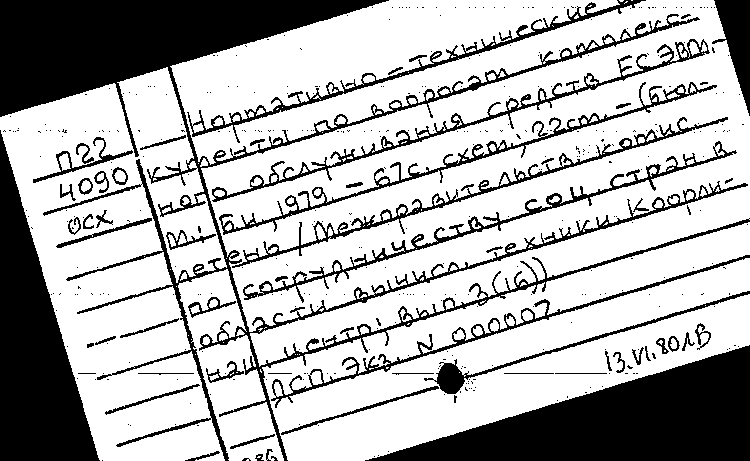 Нормативно-технические д
П22 кументы по вопросам комплекс-
4090 ного обслуживания средств ЕСЭВМ.-
осх М.: Б.и., 1979. - 67с., схем.; 22см. - (Бюл-
летень / Межправительств. комис.
по сотрудничеству соц. стран в
области вычисл. техники. Коорди-
нац. центр; вып. 3(16))
ДСП. Экз. N 000007.
13.VI.80